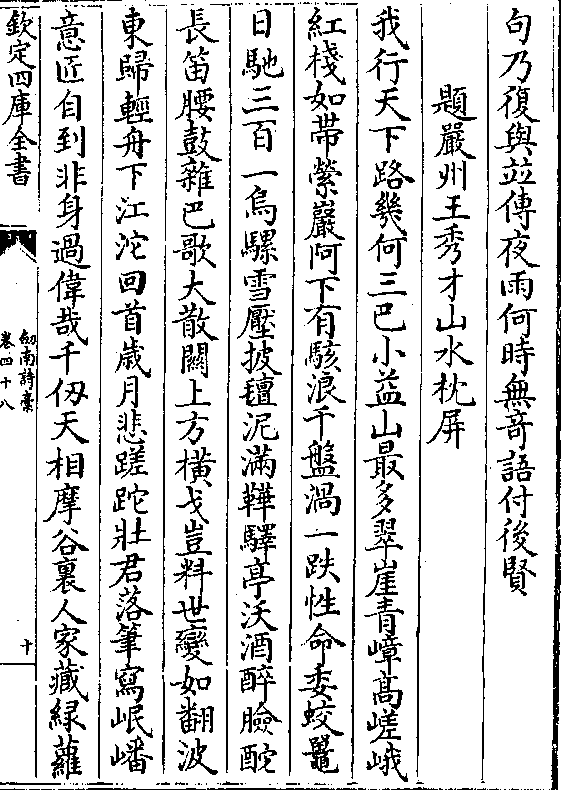 句乃復與並傳夜雨何時無竒語付後賢
題嚴州王秀才山水枕屏
我行天下路幾何三巴小益山最多翠崖青嶂髙嵯峨
紅棧如帶縈巖阿下有駭浪千盤渦一跌性命委蛟鼉
日馳三百一烏騾雪壓披氊泥滿鞾驛亭沃酒醉臉酡
長笛腰鼓雜巴歌大散闗上方橫戈豈料世變如翻波
東歸輕舟下江沱回首歲月悲蹉跎壯君落筆寫岷嶓
意匠自到非身過偉哉千仭天相摩谷裏人家藏緑蘿
欽定四庫全書
劒南詩稾
卷四十八
十